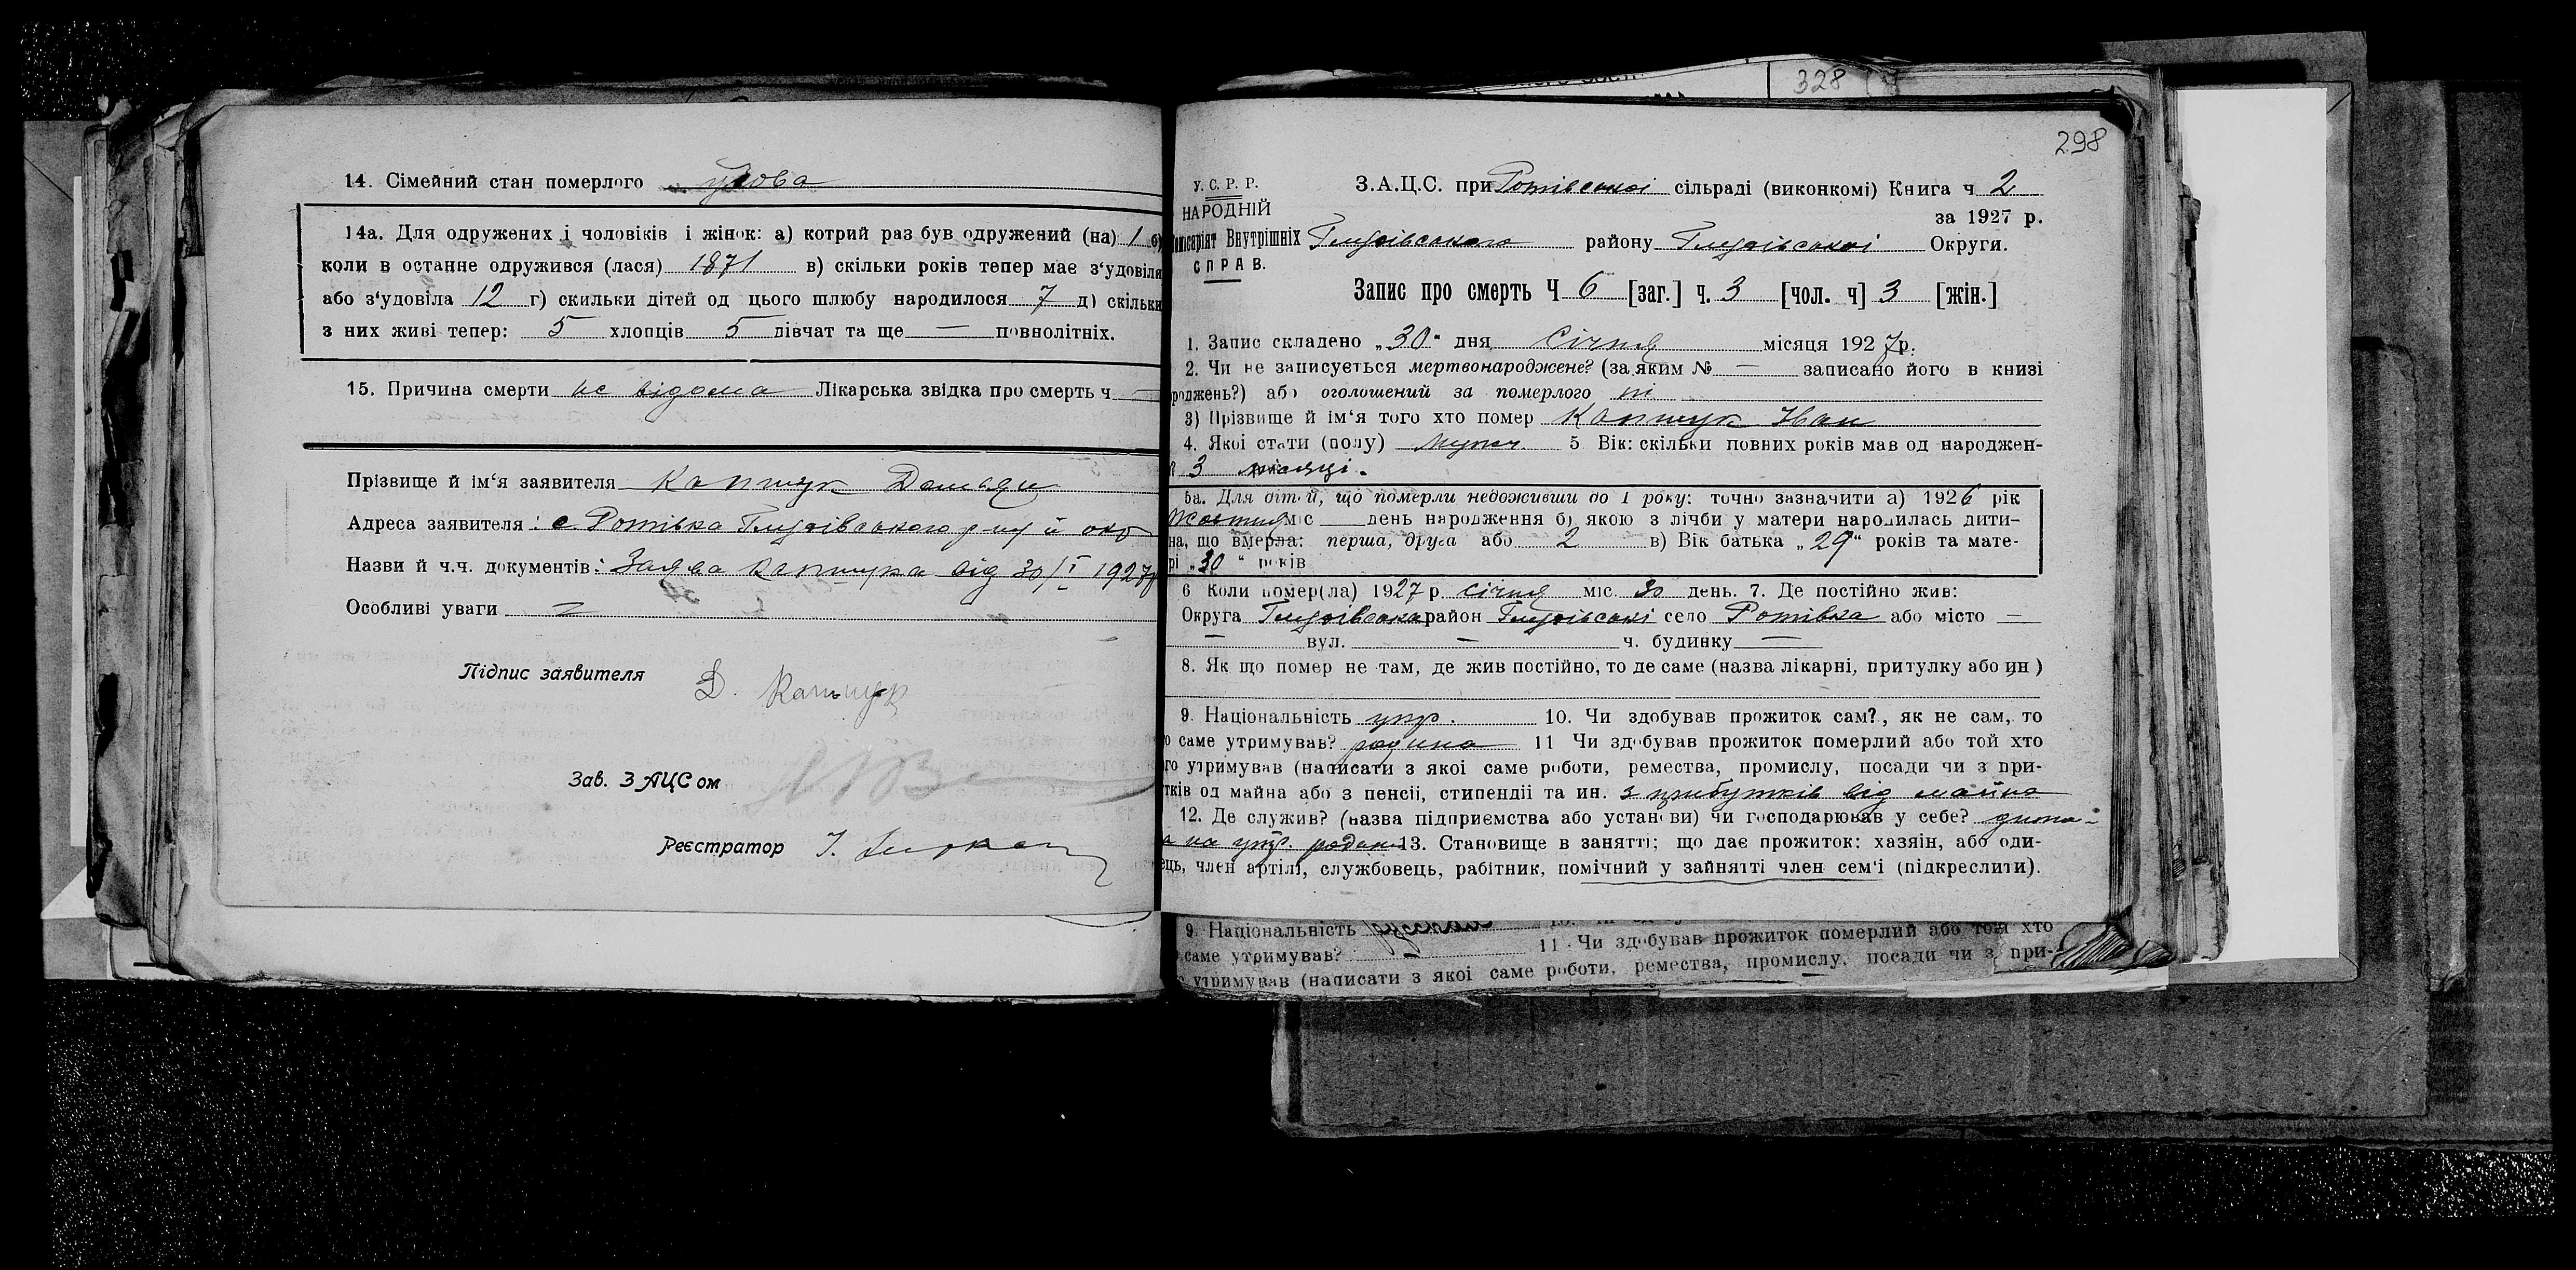 14. Сімейний стан померлого удова
14а. Для одружених і чоловіків і жінок: а) котрий раз був одружений (на) 1
коли в останнє одружився (лася) 1871 в) скільки років тепер має з'удовіли
або з'удовіла 12 г) скильки дітей од цього шлюбу народилося 7 д) скільки
з них живі тепер: 5 хлопців 5 дівчат та ще — повнолітніх.
15. Причина смерти не відома Лікарська звідка про смерть ч —
Прізвище й ім'я заявителя Капшук Демьян
Адреса заявителя: с. Ротівка Глухівського р-ну й окр
Назви й ч.ч. документів: Заява Капшука від 30/I 1927р
Особливі уваги —
Підпис заявителя Д. Капшук
Зав. ЗАЦСом
Реєстратор І.
328
298
У. С. Р. Р.
НАРОДНІЙ
Комісаріят Внутрішніх
СПРАВ.
З.А.Ц.С. при Ротівської сільраді (виконкомі) Книга ч 2
за 1927 р.
Глухівського району Глухівської Округи.
Запис про смерть Ч 6 [заг.] ч. 3 [чол. ч] 3 [жін.]
1. Запис складено „30" дня Січня місяця 1927р.
2. Чи не записується мертвонароджене? (за яким № — записано його в книзі
роджень?) або оголошений за померлого ні
3) Прізвище й ім'я того хто помер Капшук Іван
4. Якої стати (полу) мужеч. 5 Вік: скільки повних років мав од народжен-
я 3 місяці.
5а. Для дітей, що померли недоживши до 1 року: точно зазначити а) 1926 рік
Жовтня міс — день народження б) якою з лічби у матери народилась дити-
на, що вмерла: перша, друга або 2 в) Вік батька „29" років та мате-
рі „30" років
6 Коли помер(ла) 1927 р. січня міс. 30 день. 7. Де постійно жив:
Округа Глухівська район Глухівські село Ротівка або місто —
— вул. — ч. будинку —
8. Як що помер не там, де жив постійно, то де саме (назва лікарні, притулку або ин)
9. Національність укр. 10. Чи здобував прожиток сам?, як не сам, то
о саме утримував? родина 11 Чи здобував прожиток померлий або той хто
го утримував (написати з якої саме роботи, ремества, промислу, посади чи з при-
тків од майна або з пенсії, стипендії та ин. з прибутків від майна
12. Де служив? (назва підприємства або установи) чи господарював у себе?
13. Становище в занятті; що дає прожиток: хазяїн, або оди-
ець, член артілі, службовець, рабітник, помічний у зайнятті член сем'ї (підкреслити).
9. Національність
саме утримував? — 11. Чи здобував прожиток померлий або той хто
утримував (написати з якої саме роботи, ремества, промислу, посади чи з при-